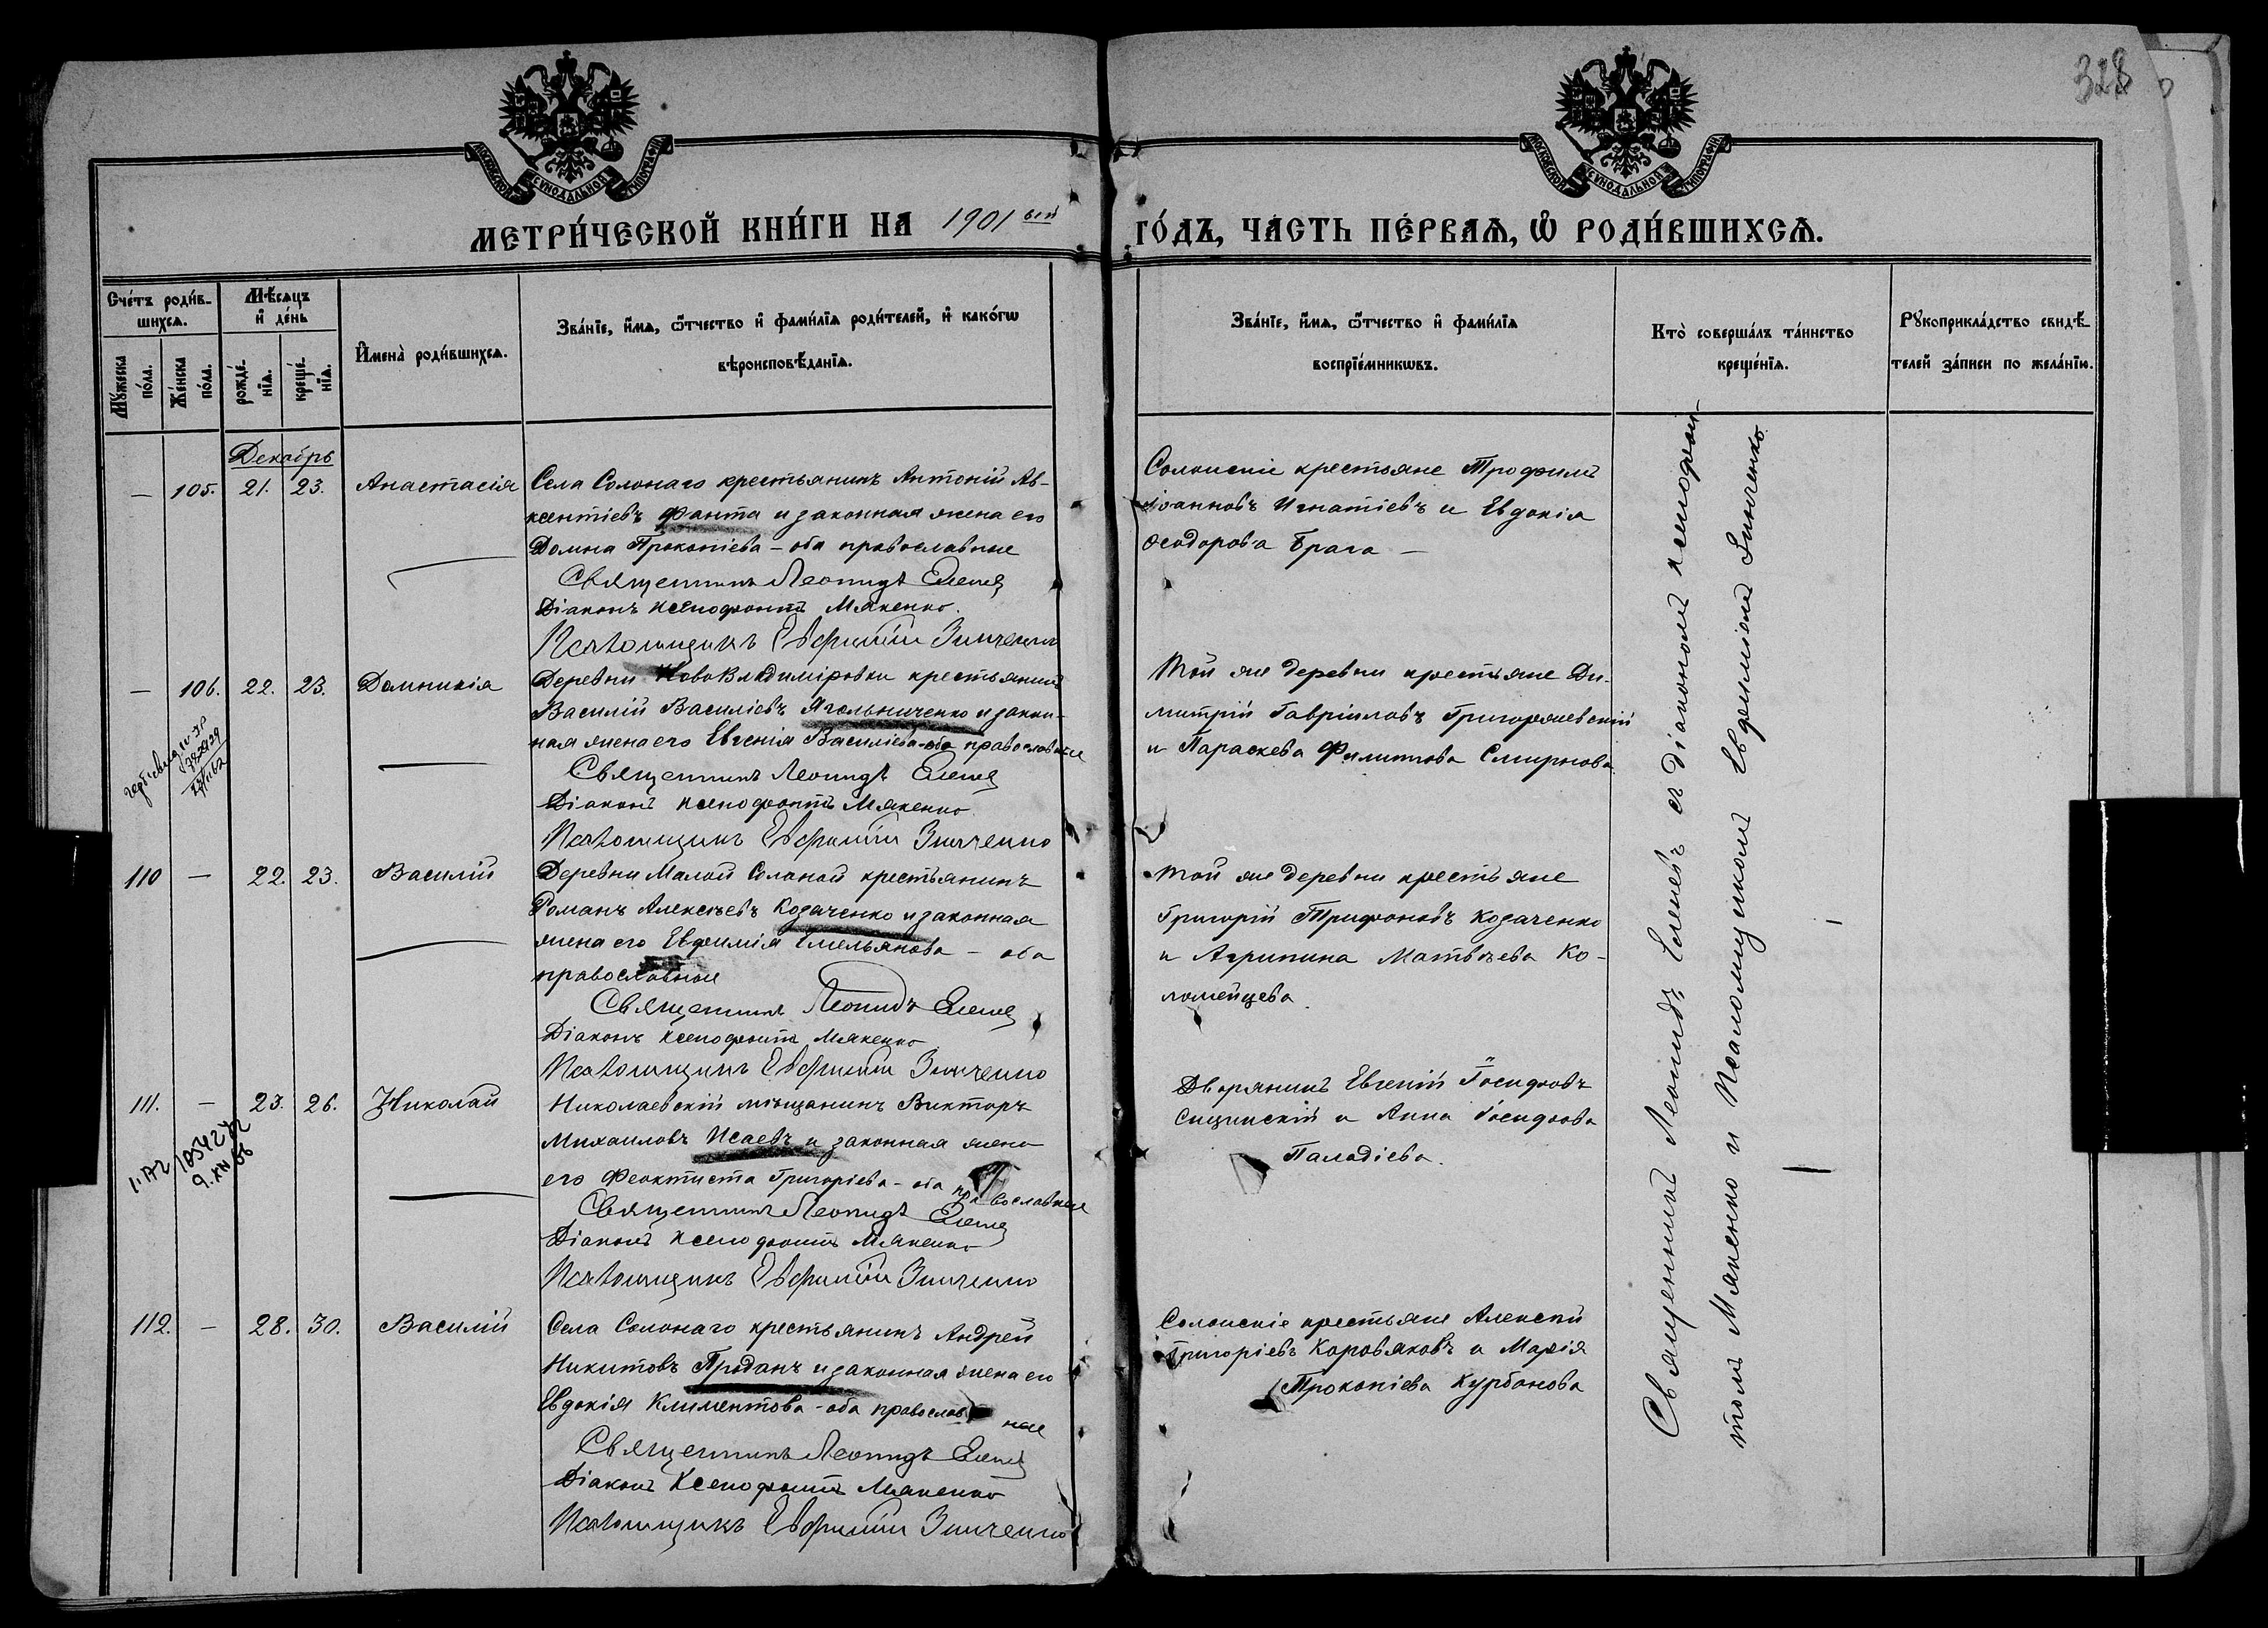 328
МОСКОВСКОЙ СУНОДАЛЬНОЙ ТИПОГРАФІИ
МОСКОВСКОЙ СУНОДАЛЬНОЙ ТИПОГРАФІИ
МЕТРИ́ЧЕСКОЙ КНИ́ГИ НА 1901 ый
ГО́ДЪ, ЧА́СТЬ ПЕ́РВАѦ, Ѡ҆ РОДИ́ВШИХСѦ.
Сче́тъ роди́в-
шихсѧ.
Мꙋ́жеска по́ла.
Же́нска по́ла.
Мѣ́сѧцъ
и҆ де́нь
рожде́-
нїѧ.
креще́-
нїѧ.
И҆мена̀ роди́вшихсѧ.
Зва́нїе, и҆́мѧ, ѻ҆́тчество и҆ фами́лїѧ роди́телей, и҆ како́гѡ
вѣроисповѣ́данїѧ.
Зва́нїе, и҆́мѧ, ѻ҆́тчество и҆ фами́лїѧ
воспрїе́мникѡвъ.
Кто̀ соверша́лъ та́инство
креще́нїѧ.
Рꙋкоприкла́дство свидѣ́-
телей за́писи по жела́нїю.
Декабрь
— 105. 21. 23. Анастасія
Села Солонаго крестьянинъ Антоній Ав-
ксентіевъ Фанта и законная жена его
Домна Прокопіева – оба православные
Священникъ Леонидъ
Діаконъ Ксенофонтъ Мякенко.
Псаломщикъ Евфимій Зинченко
Солонскіе крестьяне Трофимъ
Іоанновъ Игнатіевъ и Евдокія
Ѳеодорова Брага —
— 106. 22. 23. Домникія
Деревни НовоВладиміровки крестьянинъ
Василій Василіевъ Ягольниченко и закон-
ная жена его Евгенія Василіева – оба православные
Священникъ Леонидъ
Діаконъ Ксенофонтъ Мякенко
Псаломщикъ Евфимій Зинченко
Той же деревни крестьяне Ди-
митрій Гавріиловъ Григоржевскій
и Параскева Филиппова Смирнова
110 — 22. 23. Василій
Деревни Малой Солоной крестьянинъ
Романъ Алексѣевъ Козаченко и законная
жена его Евфимія Емельянова – оба
православные
Священникъ Леонидъ
Діаконъ Ксенофонтъ Мякенко
Псаломщикъ Евфимій Зинченко
Той же деревни крестьяне
Григорій Трифоновъ Козаченко
и Агрипина Матвѣева Ко-
ломейцева
111. — 23. 26. Николай
Николаевскій мѣщанинъ Викторъ
Михаиловъ Исаевъ и законная жена
его Феоктиста Григоріева – оба православные
Священникъ Леонидъ
Діаконъ Ксенофонтъ Мякенко
Псаломщикъ Евфимій Зинченко
Дворянинъ Евгеній Іосифовъ
Сицинскій и Анна Іосифова
Паладіева.
112. — 28. 30. Василій
Села Солонаго крестьянинъ Андрей
Никитовъ Проданъ и законная жена его
Евдокія Климентова – оба православные
Священникъ Леонидъ
Діаконъ Ксенофонтъ Мякенко
Псаломщикъ Евфимій Зинченко
Солонскіе крестьяне Алексѣй
Григоріевъ Коровяковъ и Марія
Прокопіева Курбанова
Священникъ Леонидъ съ Діакономъ Ксенофон-
томъ Мякенко и Псаломщикомъ Евфиміемъ Зинченко